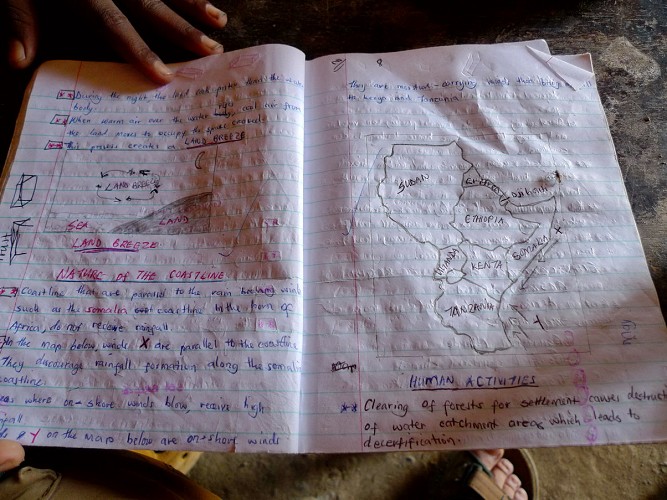 ** During the night, the land cools faster than the water
body.
** When warm air over the water rises, cool air from
the land moves to occupy the space created
** This process creates a LAND BREEZE
LAND BREEZE
SEA
LAND
LAND BREEZE
NATURE OF THE COASTLINE
** Coastline that are parallel to the rain winds
such as the somalia coastline in the horn of
Africa, do not receive rainfall.
In the map below, winds X are parallel to the coastline
They discourage rainfall formation along the somalia
coastline
where on-shore winds blow, receive high
Y on the map below are on-shore winds
8
They are moisture-carrying winds that bring
to heavy rainfall
SUDAN
ERITREA
DJIBOUTI
ETHIOPIA
SOMALIA
X
UGANDA
KENYA
TANZANIA
Y
HUMAN ACTIVITIES
** Clearing of forests for settlement causes destruct
of water catchment areas which leads to
decertification.